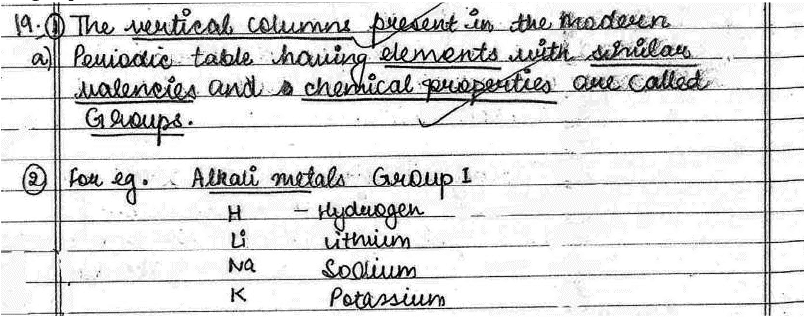 19. ① The vertical columns present in the modern
a) Periodic table having elements with similar
valencies and chemical properties are called
Groups.
② For eg. Alkali metals Group I
H - Hydrogen
Li Lithium
Na Sodium
K Potassium